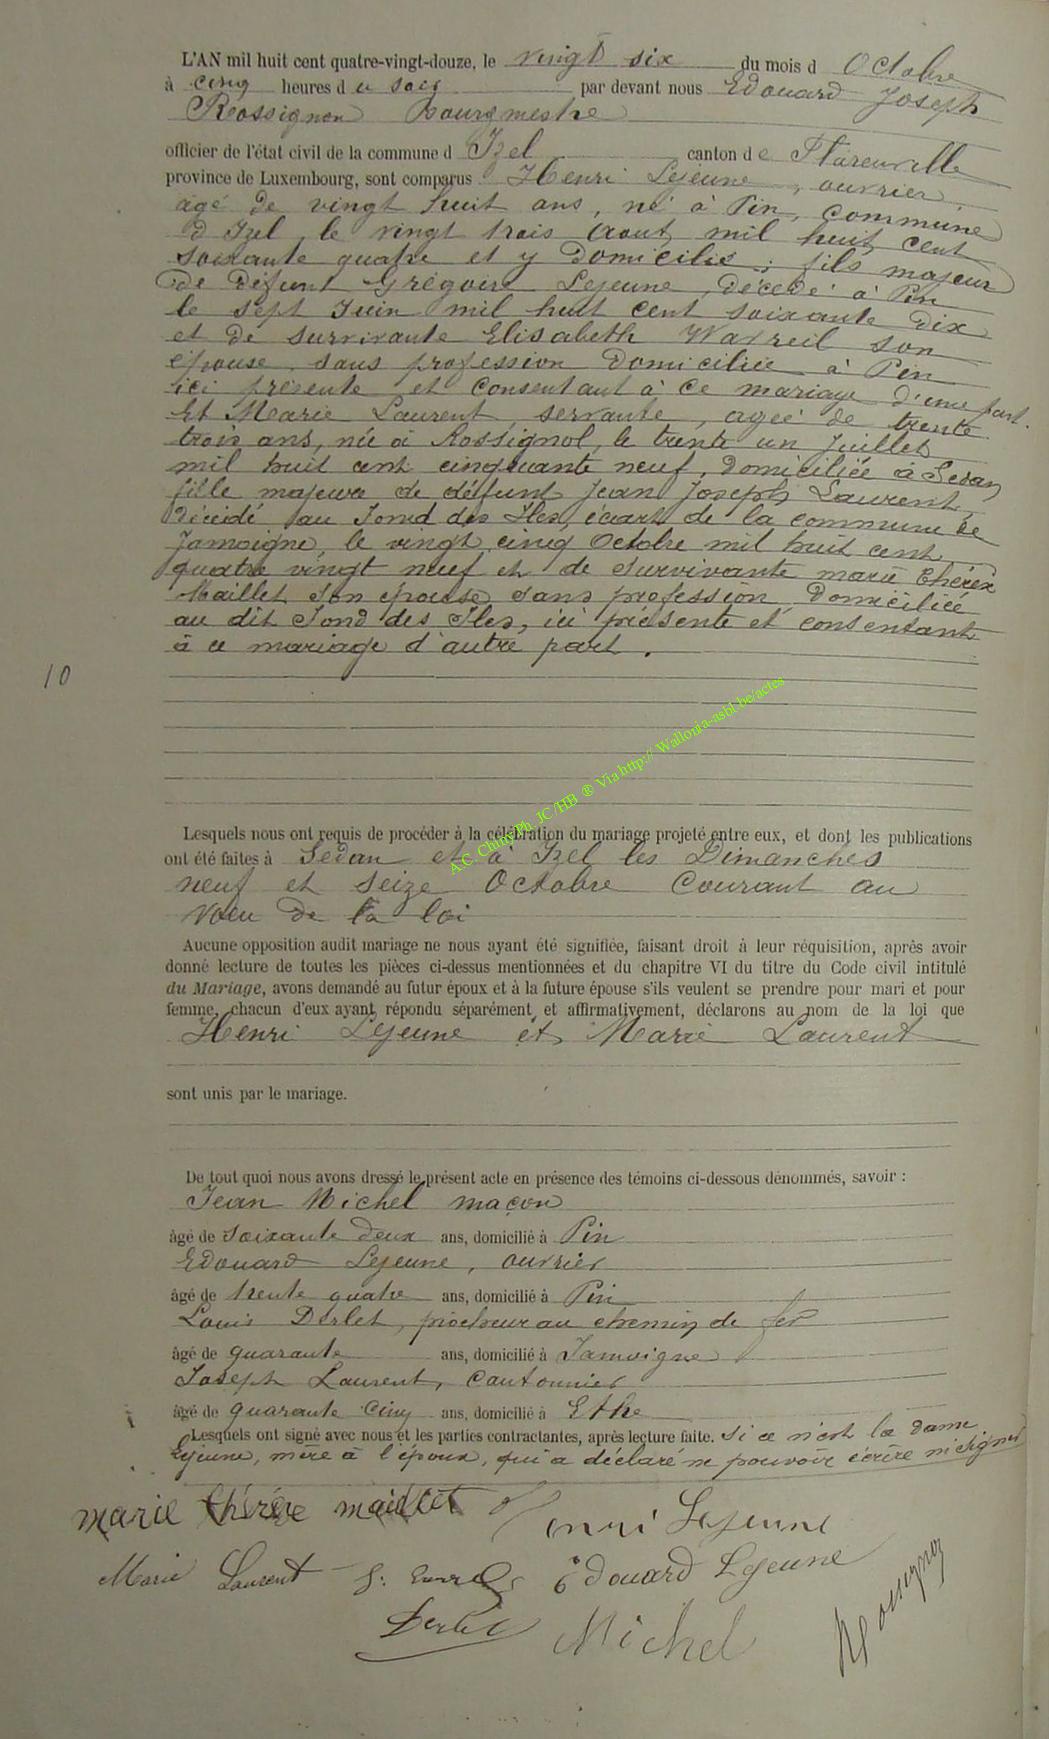 L'AN mil huit cent quatre-vingt-douze, le vingt six du mois d Octobre
à cinq heures d u soir par devant nous Edouard Joseph
Rossignon Bourgmestre
officier de l'état civil de la commune d Izel canton d e Florenville
province de Luxembourg, sont comparus Henri Lejeune, ouvrier
âgé de vingt huit ans, né à Pin, commune
d'Izel, le vingt trois Aout mil huit cent
soixante quatre et y domicilié ; fils majeur
de défunt Grégoire Lejeune, décédé à Pin
le sept Juin mil huit cent soixante dix
et de survivante Elisabeth son
épouse sans profession domiciliée à Pin
ici présente et consentant à ce mariage d'une part.
Et Marie Laurent, servante, agée de trente
trois ans, née à Rossignol, le trente un Juillet
mil huit cent cinquante neuf, domiciliée à Sedan
fille majeure de défunt Jean Joseph Laurent,
décédé au Fond des Iles, écart de la commune de
Jamoigne, le vingt cinq Octobre mil huit cent
quatre vingt neuf et de survivante marie thérèse
Maillet son épouse sans profession, domiciliée
au dit Fond des Iles, ici présente et consentant
à ce mariage d'autre part.
10
Lesquels nous ont requis de procéder à la célébration du mariage projeté entre eux, et dont les publications
ont été faites à Sedan et à Izel les Dimanches
neuf et seize Octobre courant au
voeu de la loi
Aucune opposition audit mariage ne nous ayant été signifiée, faisant droit à leur réquisition, après avoir
donné lecture de toutes les pièces ci-dessus mentionnées et du chapitre VI du titre du Code civil intitulé
du Mariage, avons demandé au futur époux et à la future épouse s'ils veulent se prendre pour mari et pour
femme, chacun d'eux ayant répondu séparément et affirmativement, déclarons au nom de la loi que
Henri Lejeune et Marie Laurent
sont unis par le mariage.
De tout quoi nous avons dressé le présent acte en présence des témoins ci-dessous dénommés, savoir :
Jean Michel maçon
âgé de soixante deux ans, domicilié à Pin
Edouard Lejeune, ouvrier
âgé de trente quatre ans, domicilié à Pin
Louis Derlet, piocheur au chemin de fer
âgé de quarante ans, domicilié à Jamoigne
Joseph Laurent, cantonnier
âgé de quarante cinq ans, domicilié à Ethe
Lesquels ont signé avec nous et les parties contractantes, après lecture faite. si ce n'est la dame
Lejeune, mère à l'époux, qui a déclaré ne pouvoir écrire ni signer
marie thérèse maillet Henri Lejeune
Marie Laurent Edouard Lejeune
Derlet Michel Rossignon
A.C. Chiny Ph. JC/HB ® Via http:// Wallonia-asbl.be/actes